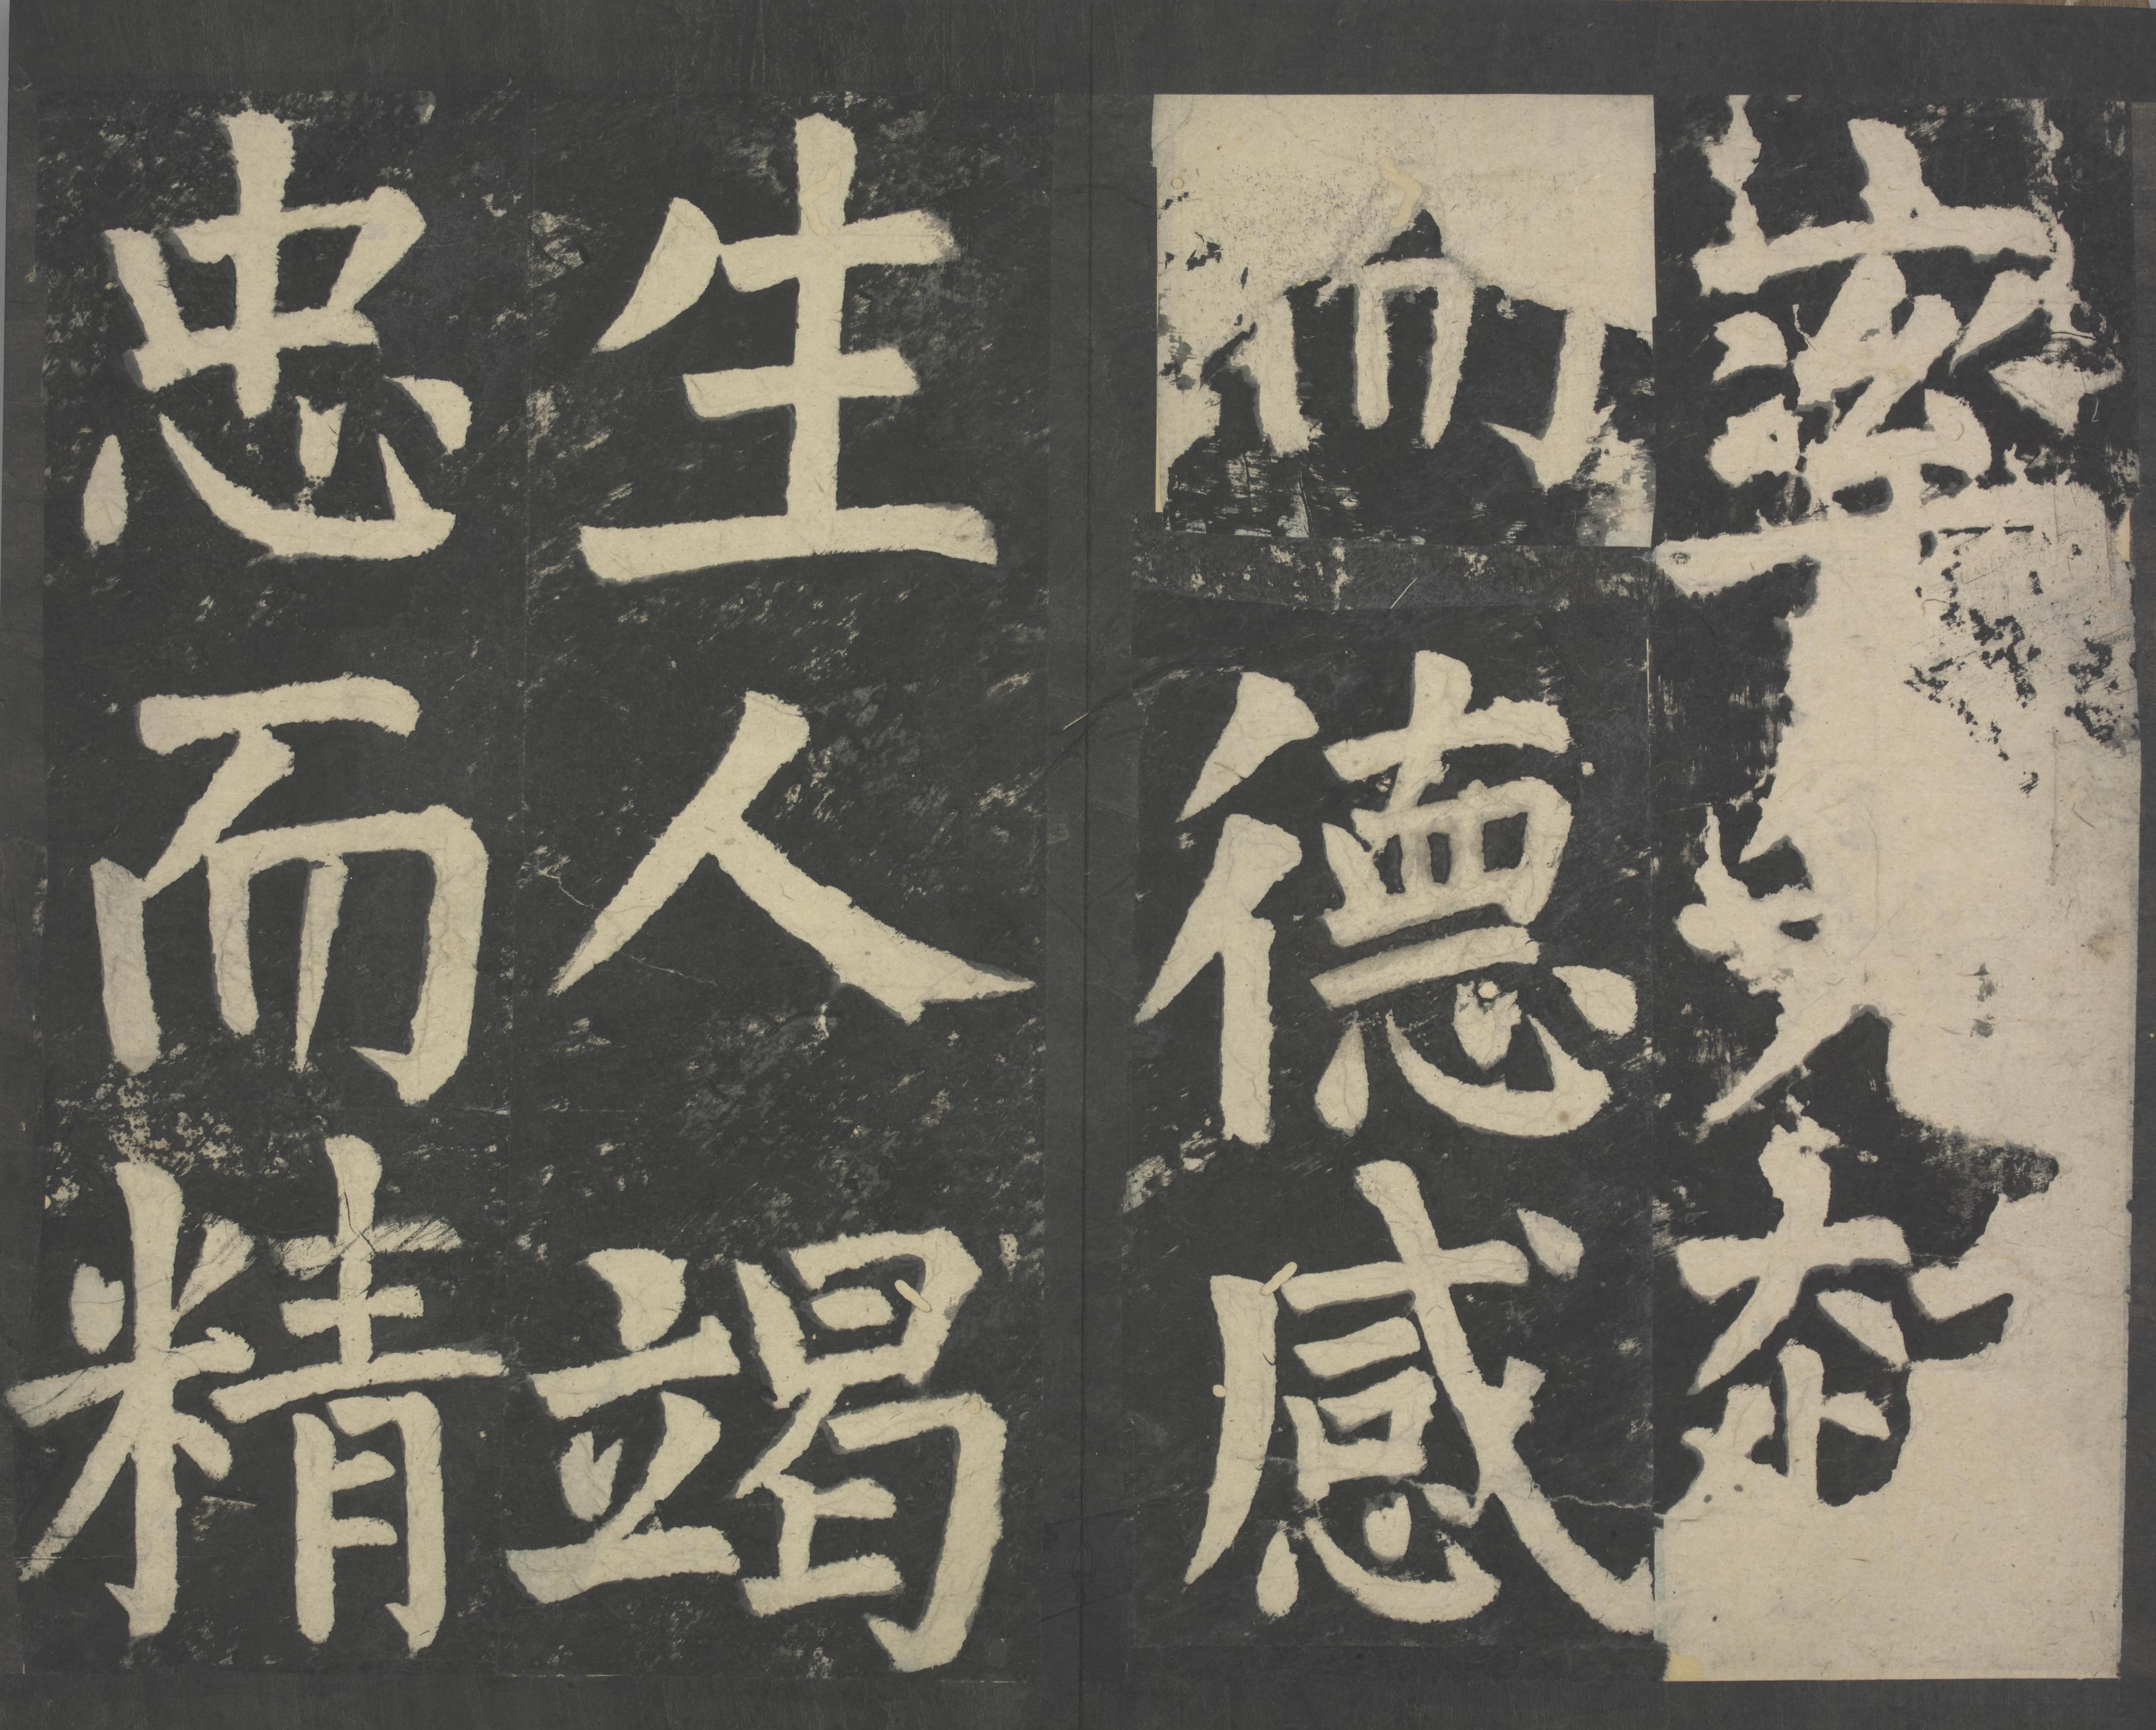 而德感
生人竭
忠而精